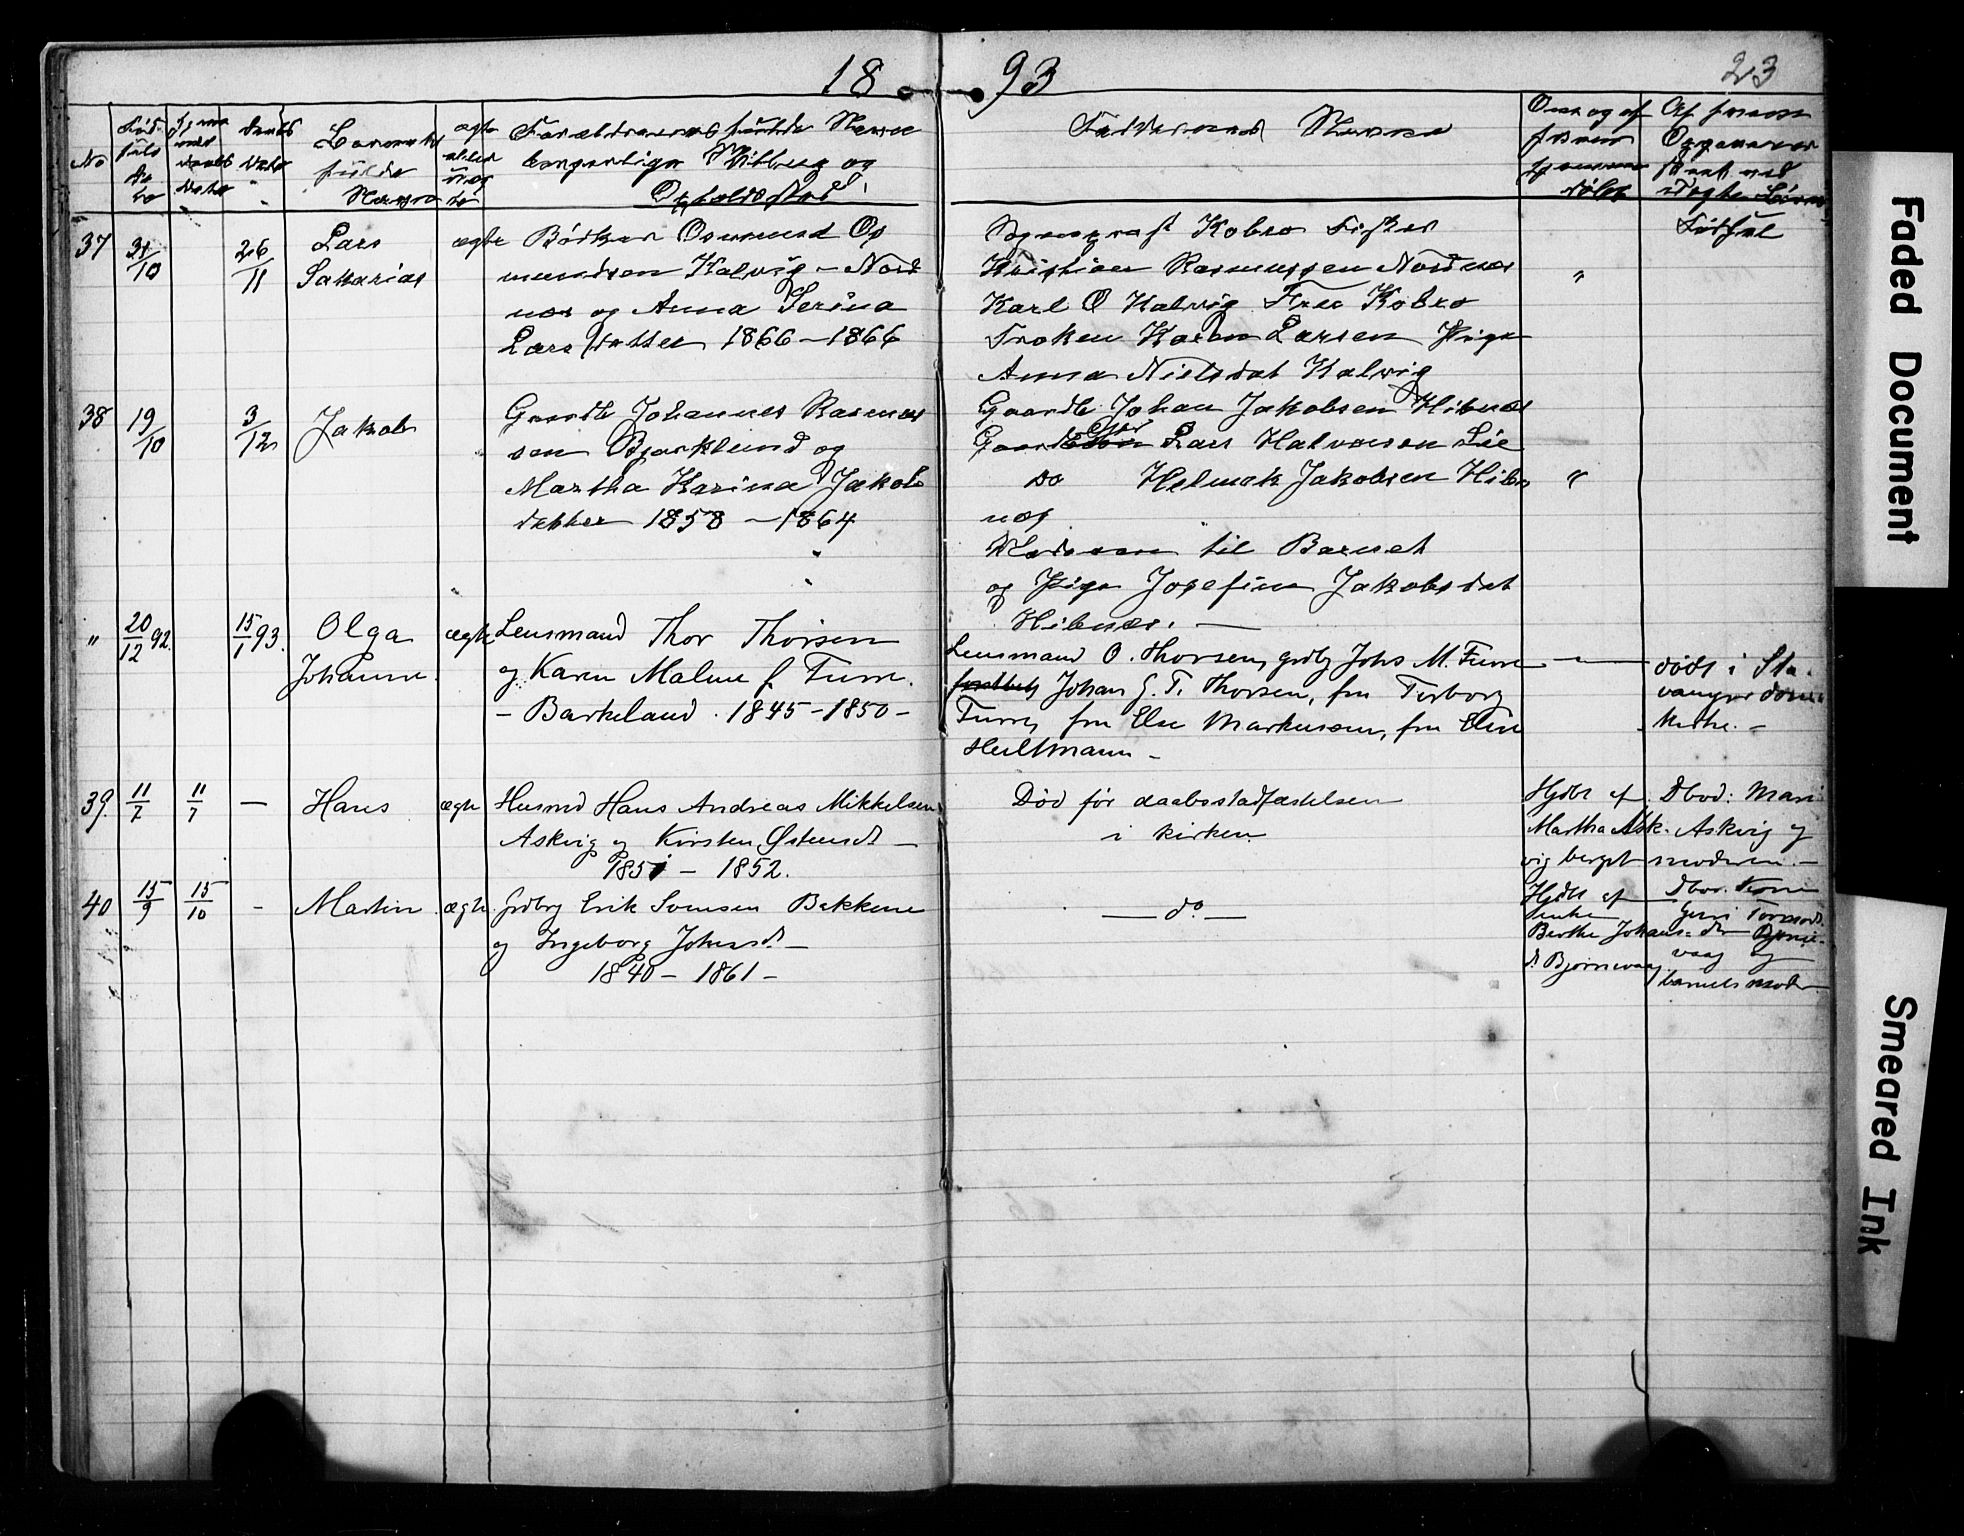 18 93
23
No
Barnets
fulde
Navn
Forældrenes fulde Navne
borgerlige Stilling og
Opholdssted
Faddernes Navne
37 31/10 26/11 Lars
Sakarias
ægte Bödker Osmund Os
mundsen Kalvig – Nord
næs og Anna Serina
Larsdatter 1866 – 1866
Sogneprest Kobro Fisker
Kristian Rasmussen Nordnæs
Karl O Kalvig Frue Kobro
Frøken Karen Larsen Pige
Anna Nielsdat Kalvig
"
38 19/10 3/12 Jakob
Gaardb Johannes Rasmus
sen Bjørklund og
Martha Karina Jakobs
datter 1858 – 1864
Gaardb Johan Jakobsen Hibnæs
Lars Halvorsen Lie
do Helmik Jakobsen Hib
næs
Moderen til Barnet
og Pige Josefine Jakobsdat
Hibnæs. —
"
" 20/12 92. 15/1 93. Olga
Johanne.
ægte Lensmand Thor Thorsen
og Karen Malene f. Furre.
– Barkeland. 1845 – 1850 –
Lensmand O. Thorsen, grdbr Johs M. Furre
Johan G. T. Thorsen, fru Torborg
Furre, fru Else Markussen, fru Elen
Heltmann –
—
døbt i Sta-
vanger dom-
kirke. –
39. 11/7 11/7 — Hans ægte Husmd Hans Andreas Mikkelsen
Askvig og Kirsten Østensdt —
1851 – 1852.
Død før daabsstadfæstelsen
i kirken.
Hjdbt af
Martha Ask-
vig berget
Dbvd: Mari
Askvig og
moderen. —
40 15/9 15/10 - Martin ægte grdbr Erik Svensen Bakkene
og Ingeborg Johnsd. —
1840 – 1861 –
— do —
Hjdbt af
enke
Berthe Johans-
d. Bjørnevaag
Dbvd. kone
Guri Tormods
dtr Bjørne-
vaag og
barnets moder
Faded Document
Smeared Ink